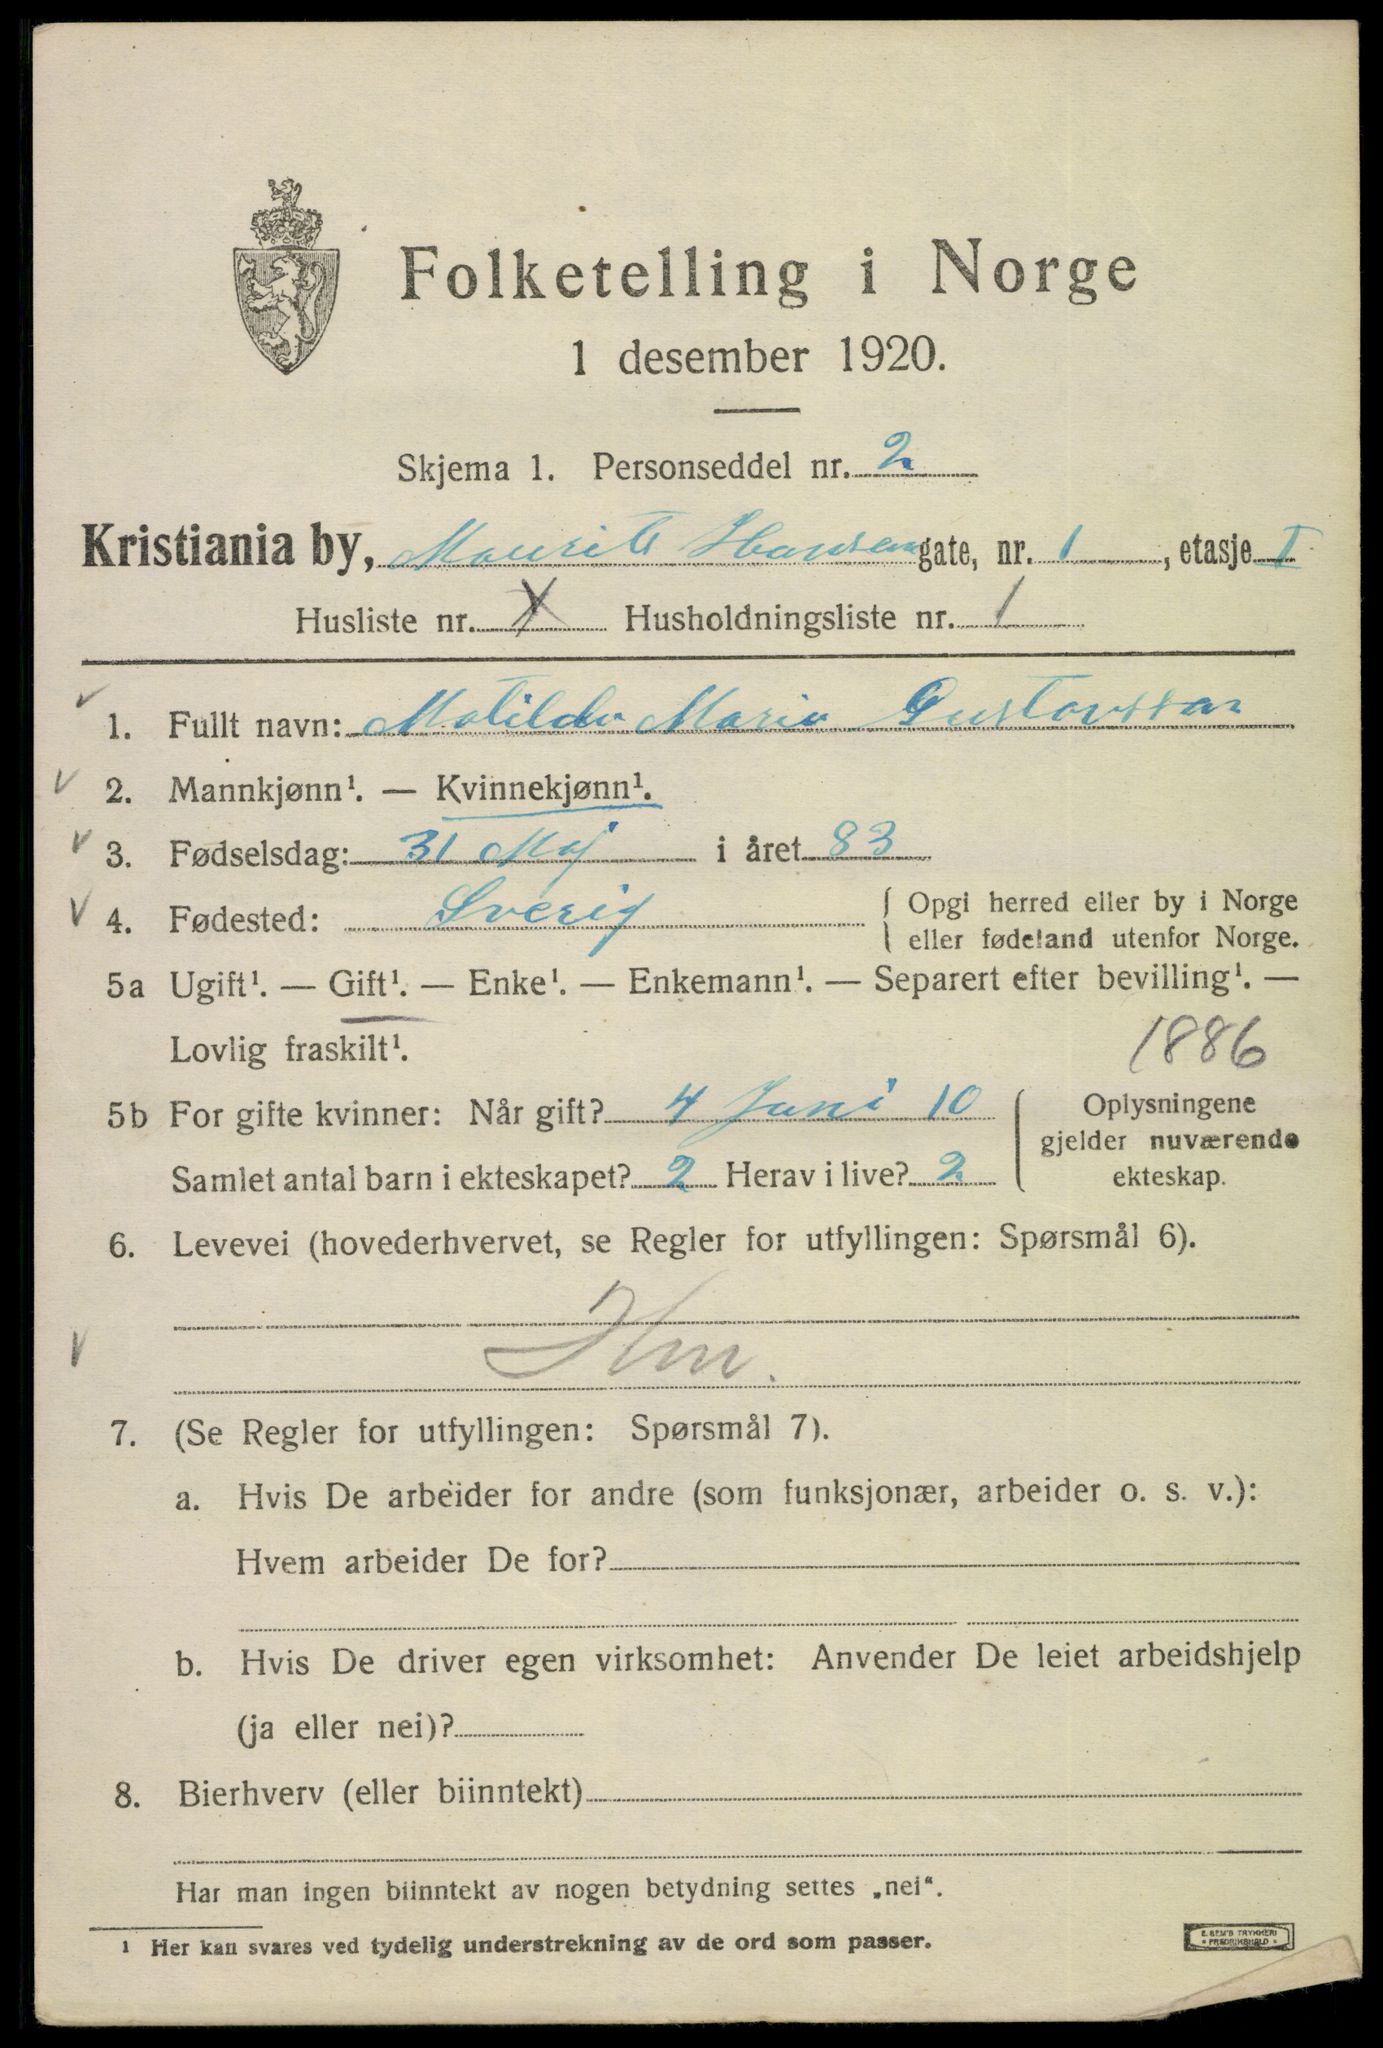 Folketelling i Norge
1 desember 1920.
Skjema 1. Personseddel nr. 2
Kristiania by, Maurits Hansens gate, nr. 1, etasje I
Husliste nr. X Husholdningsliste nr. 1
1. Fullt navn: Matilda Maria Gustavsson
2. Mannkjønn¹. — Kvinnekjønn¹.
3. Fødselsdag: 31 Maj i året 83
4. Fødested: Sverig { Opgi herred eller by i Norge
eller fødeland utenfor Norge.
5a Ugift¹. — Gift¹. — Enke¹. — Enkemann¹. — Separert efter bevilling¹. —
Lovlig fraskilt¹. 1886
5b For gifte kvinner: Når gift? 4 Juni 10 { Oplysningene
gjelder nuværende
Samlet antal barn i ekteskapet? 2 Herav i live? 2 ekteskap.
6. Levevei (hovederhvervet, se Regler for utfyllingen: Spørsmål 6).
Hm.
7. (Se Regler for utfyllingen: Spørsmål 7).
a. Hvis De arbeider for andre (som funksjonær, arbeider o. s. v.):
Hvem arbeider De for?
b. Hvis De driver egen virksomhet: Anvender De leiet arbeidshjelp
(ja eller nei)?
8. Bierhverv (eller biinntekt)
Har man ingen biinntekt av nogen betydning settes „nei“.
¹ Her kan svares ved tydelig understrekning av de ord som passer.
E. SEM'S TRYKKERI
• FREDRIKSHALD •